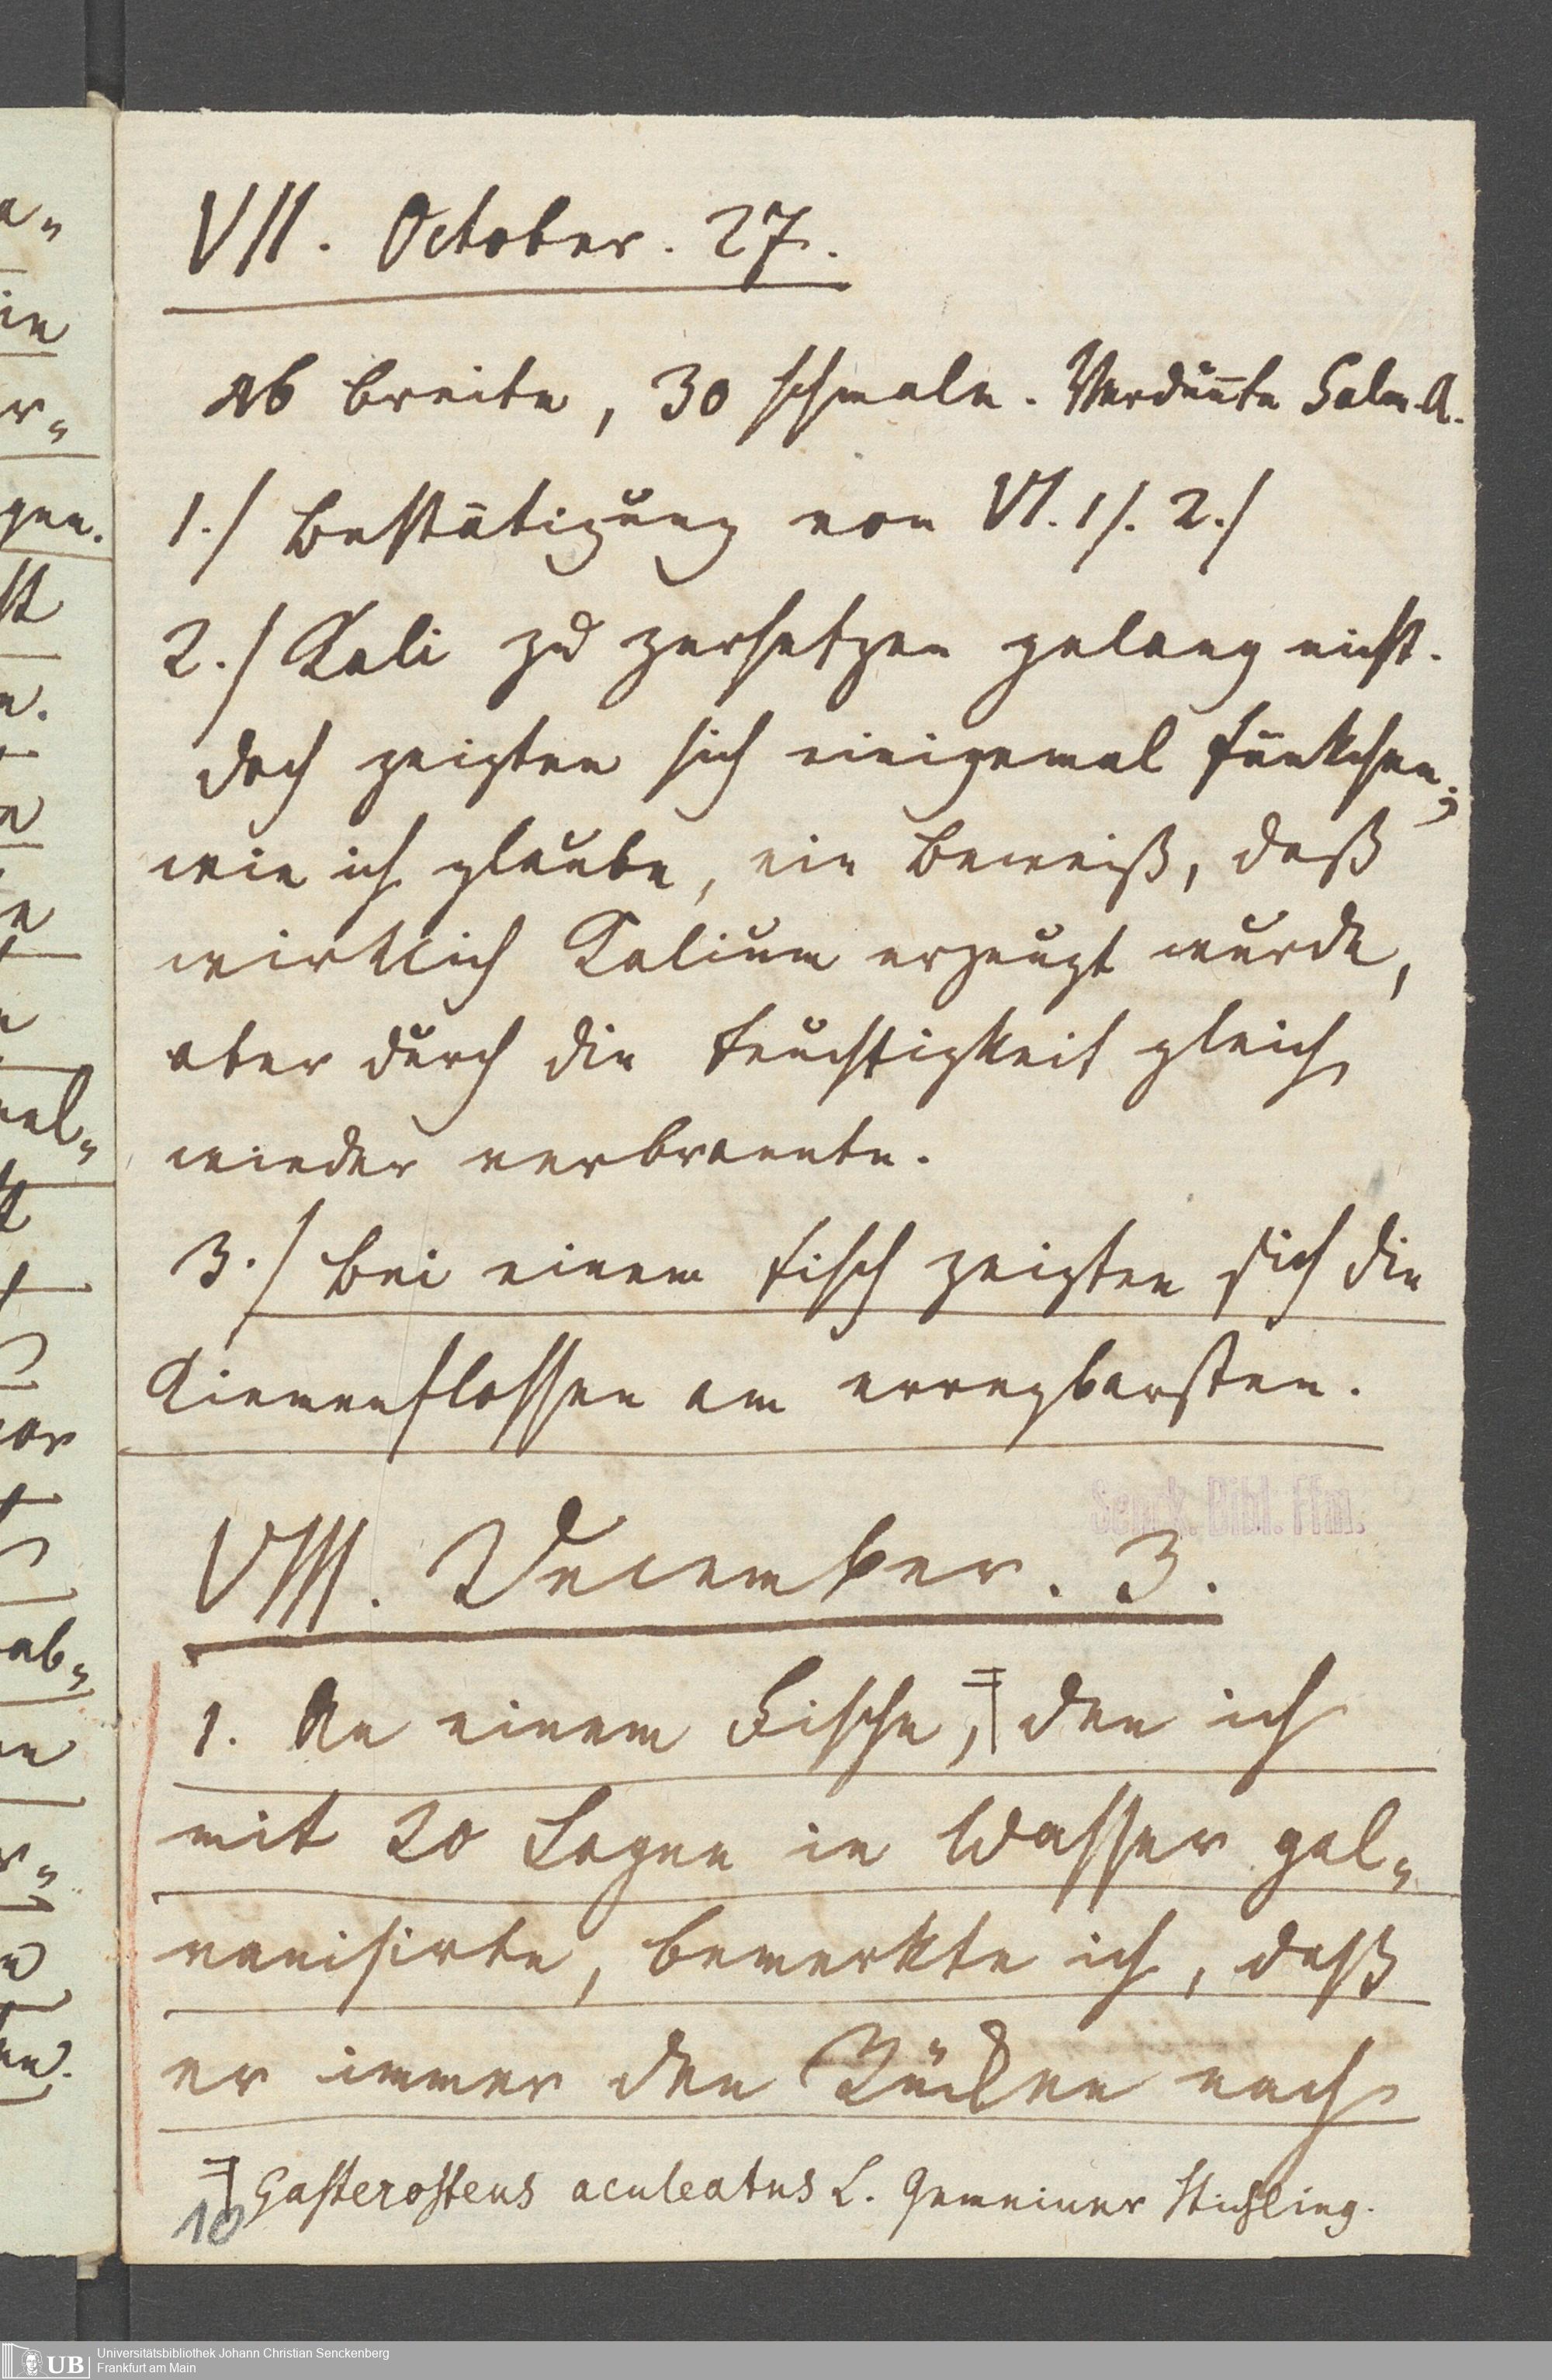 VII. October. 27.
26 breite, 30 schmale. Verdünte Salm. A.
1./ Bestätigung von VI. 1/. 2./
2./ Kali zu zersetzen gelang nicht.
doch zeigten sich einigemal Fünkchen;
wie ich glaube, ein Beweiß, daß
wirklich Kalium erzeugt wurde,
aber durch die Feuchtigkeit gleich
wieder verbrannte.
3./ Bei einem Fisch zeigten sich die
Kiemenflossen am erregbarsten.
Senck. Bibl. Ffm.
VIII. December. 3.
1. An einem Fische, den ich
mit 20 Lagen in Wasser gal„
vanisirte, bemerkte ich, daß
er immer den Rücken nach
Gasterosteus aculeatus L. Gemeiner Stichling.
10
UB Universitätsbibliothek Johann Christian Senckenberg
Frankfurt am Main